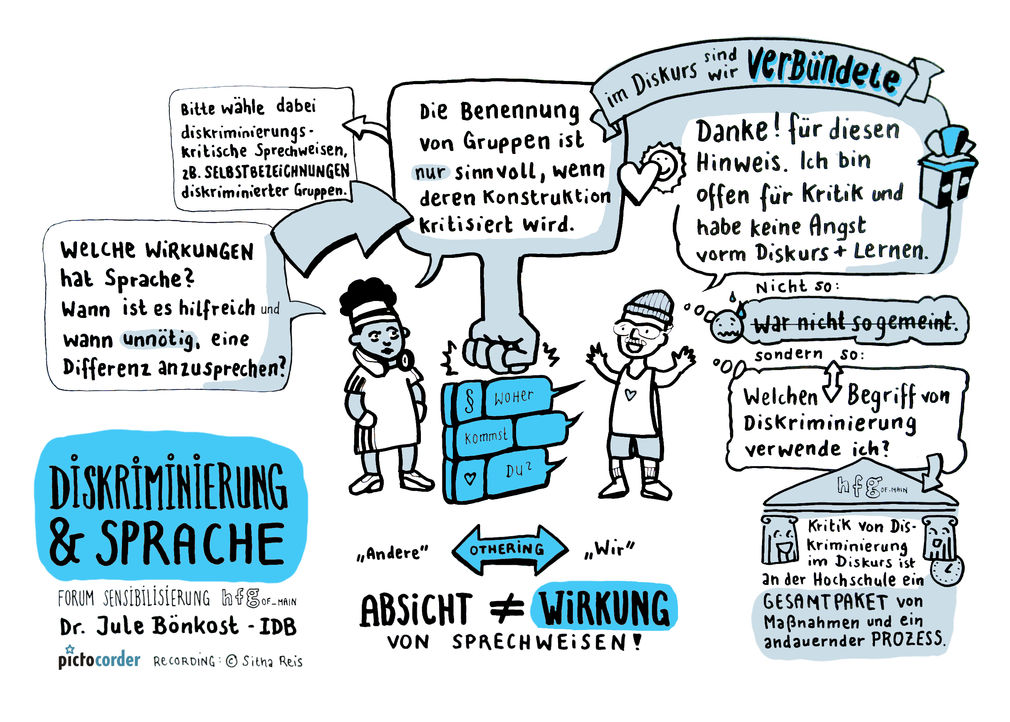 im Diskurs sind wir VERBÜNDETE
Bitte wähle dabei
diskriminierungs-
kritische Sprechweisen,
zB. SELBSTBEZEICHNUNGEN
diskriminierter Gruppen.
Die Benennung
von Gruppen ist
nur sinnvoll, wenn
deren Konstruktion
kritisiert wird.
Danke! für diesen
Hinweis. Ich bin
offen für Kritik und
habe keine Angst
vorm Diskurs + Lernen.
WELCHE WIRKUNGEN
hat Sprache?
Wann ist es hilfreich und
wann unnötig, eine
Differenz anzusprechen?
Nicht so:
war nicht so gemeint.
sondern so:
Welchen Begriff von
Diskriminierung
verwende ich?
§ WOHER
kommst
DU?
hfg OF_MAIN
Kritik von Dis-
kriminierung
im Diskurs ist
an der Hochschule ein
GESAMTPAKET von
Maßnahmen und ein
andauernder PROZESS.
DISKRIMINIERUNG
& SPRACHE
FORUM SENSIBILISIERUNG hfg OF_MAIN
Dr. Jule Bönkost - IDB
pictocorder RECORDING: © Sitha Reis
„Andere" OTHERING „Wir"
ABSICHT ≠ WIRKUNG
VON SPRECHWEISEN!